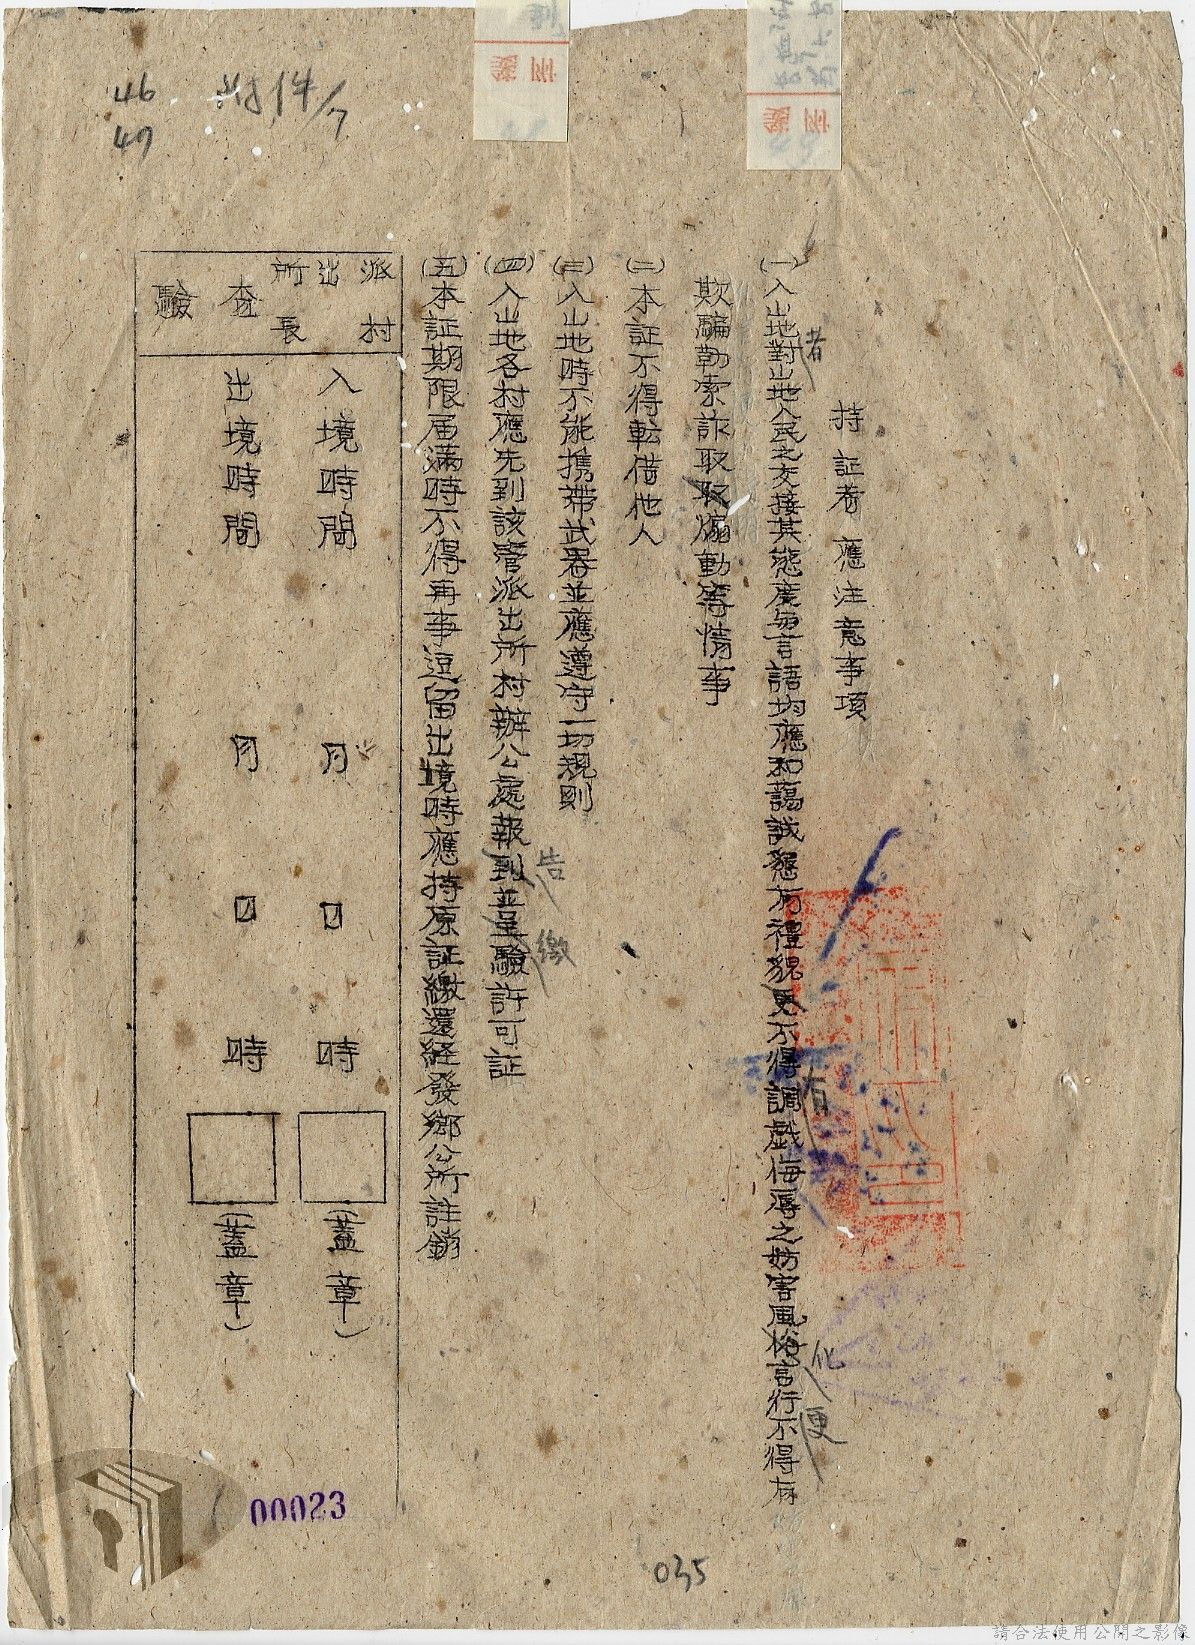 附件/7
46
49
持証者應注意事項
(一)入山地對山地人民之交接其態度與言語均應和藹誠懇有禮貌更不得調戲侮辱之妨害風俗言行不得有
者
有
化
便
欺騙勒索詐取取煽動等情事
(二)本証不得転借他人
(三)入山地時不能携帶武器並應遵守一切規則
(四)入山地各村應先到該管派出所村辦公處報到並呈驗許可証
告
繳
(五)本証期限届滿時不得再事逗留出境時應持原証繳還経發鄉公所註銷
派出所
村長
查驗
入境時間 月 日 時 (蓋章)
出境時間 月 日 時 (蓋章)
00023
035
請合法使用公開之影像